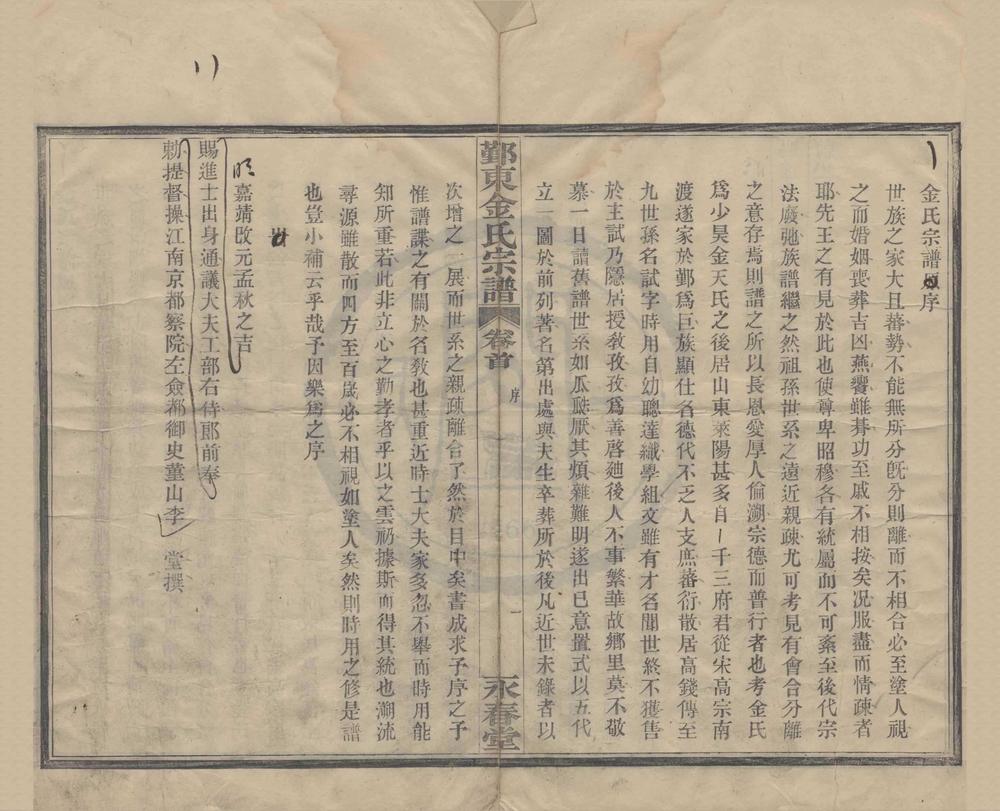 金氏宗譜序
世族之家大且蕃勢不能無所分旣分則離而不相合必至塗人視
之而婚姻喪葬吉凶燕饗雖朞功至戚不相按矣况服盡而情疎者
耶先王之有見於此也使尊卑昭穆各有統屬而不可紊至後代宗
法廢弛族譜繼之然祖孫世系之遠近親疎尤可考見有會合分離
之意存焉則譜之所以長恩愛厚人倫溯宗德而普行者也考金氏
爲少昊金天氏之後居山東萊陽甚多自千三府君從宋高宗南
渡遂家於鄞爲巨族顯仕名德代不乏人支庶蕃衍散居高錢傳至
九世孫名試字時用自幼聰達纎學組文雖有才名聞世終不獲售
於主試乃隱居授敎孜孜爲善啓廸後人不事繁華故鄉里莫不敬
慕一日讀舊譜世系如瓜瓞厭其煩雜難明遂出已意置式以五代
立一圖於前列著名第出處與夫生卒葬所於後凡近世未錄者以
鄞東金氏宗譜 卷首 序 一 永春堂
次增之一展而世系之親疎離合了然於目中矣書成求予序之予
惟譜諜之有關於名敎也甚重近時士大夫家多忽不舉而時用能
知所重若此非立心之勤孝者乎以之雲礽據斯而得其統也溯流
尋源雖散而四方至百歲必不相視如塗人矣然則時用之修是譜
也豈小補云乎哉予因樂爲之序
明
嘉靖改元孟秋之吉
賜進士出身通議大夫工部右侍郎前奉
勅提督操江南京都察院左僉都御史菫山李 堂撰